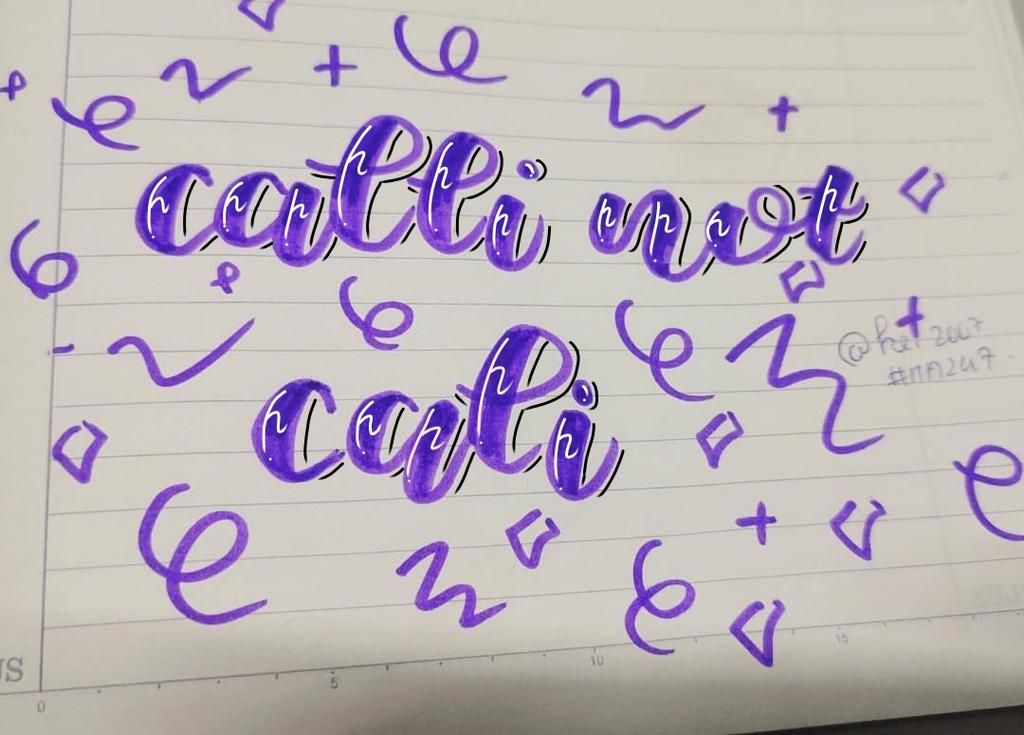 calli not
cali
#MA247
US
0
5
10
15